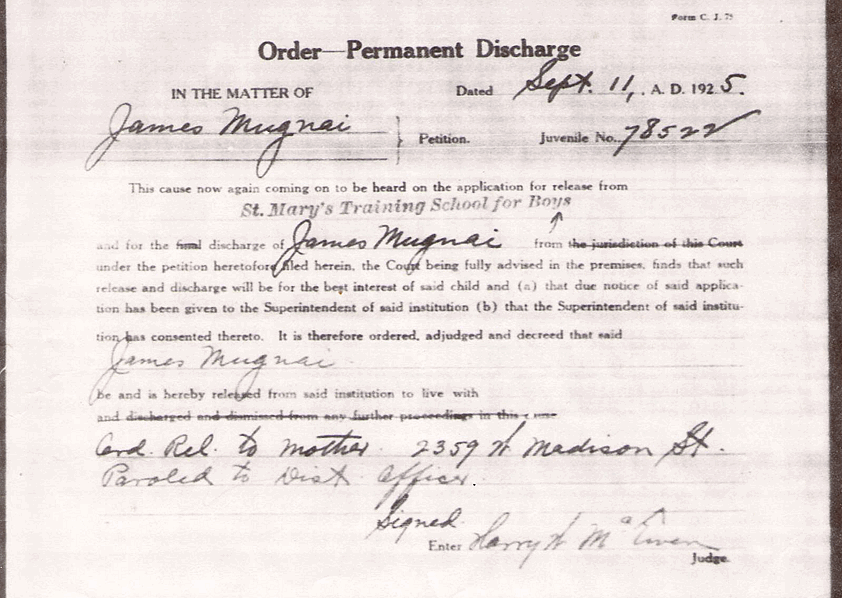 Form C. J. 75
Order—Permanent Discharge
IN THE MATTER OF Dated Sept. 11, A. D. 1925.
James Mugnai } Petition. Juvenile No. 78522
This cause now again coming on to be heard on the application for release from
St. Mary's Training School for Boys
and for the final discharge of James Mugnai from the jurisdiction of this Court
under the petition heretofore filed herein, the Court being fully advised in the premises, finds that such
release and discharge will be for the best interest of said child and (a) that due notice of said applica-
tion has been given to the Superintendent of said institution (b) that the Superintendent of said institu-
tion has consented thereto. It is therefore ordered, adjudged and decreed that said
James Mugnai
be and is hereby released from said institution to live with
and discharged and dismissed from any further proceedings in this case
Ord. Rel. to mother. 2359 W Madison St.
Paroled to Dist. Officer.
Signed.
Enter Harry W McEwen
Judge.